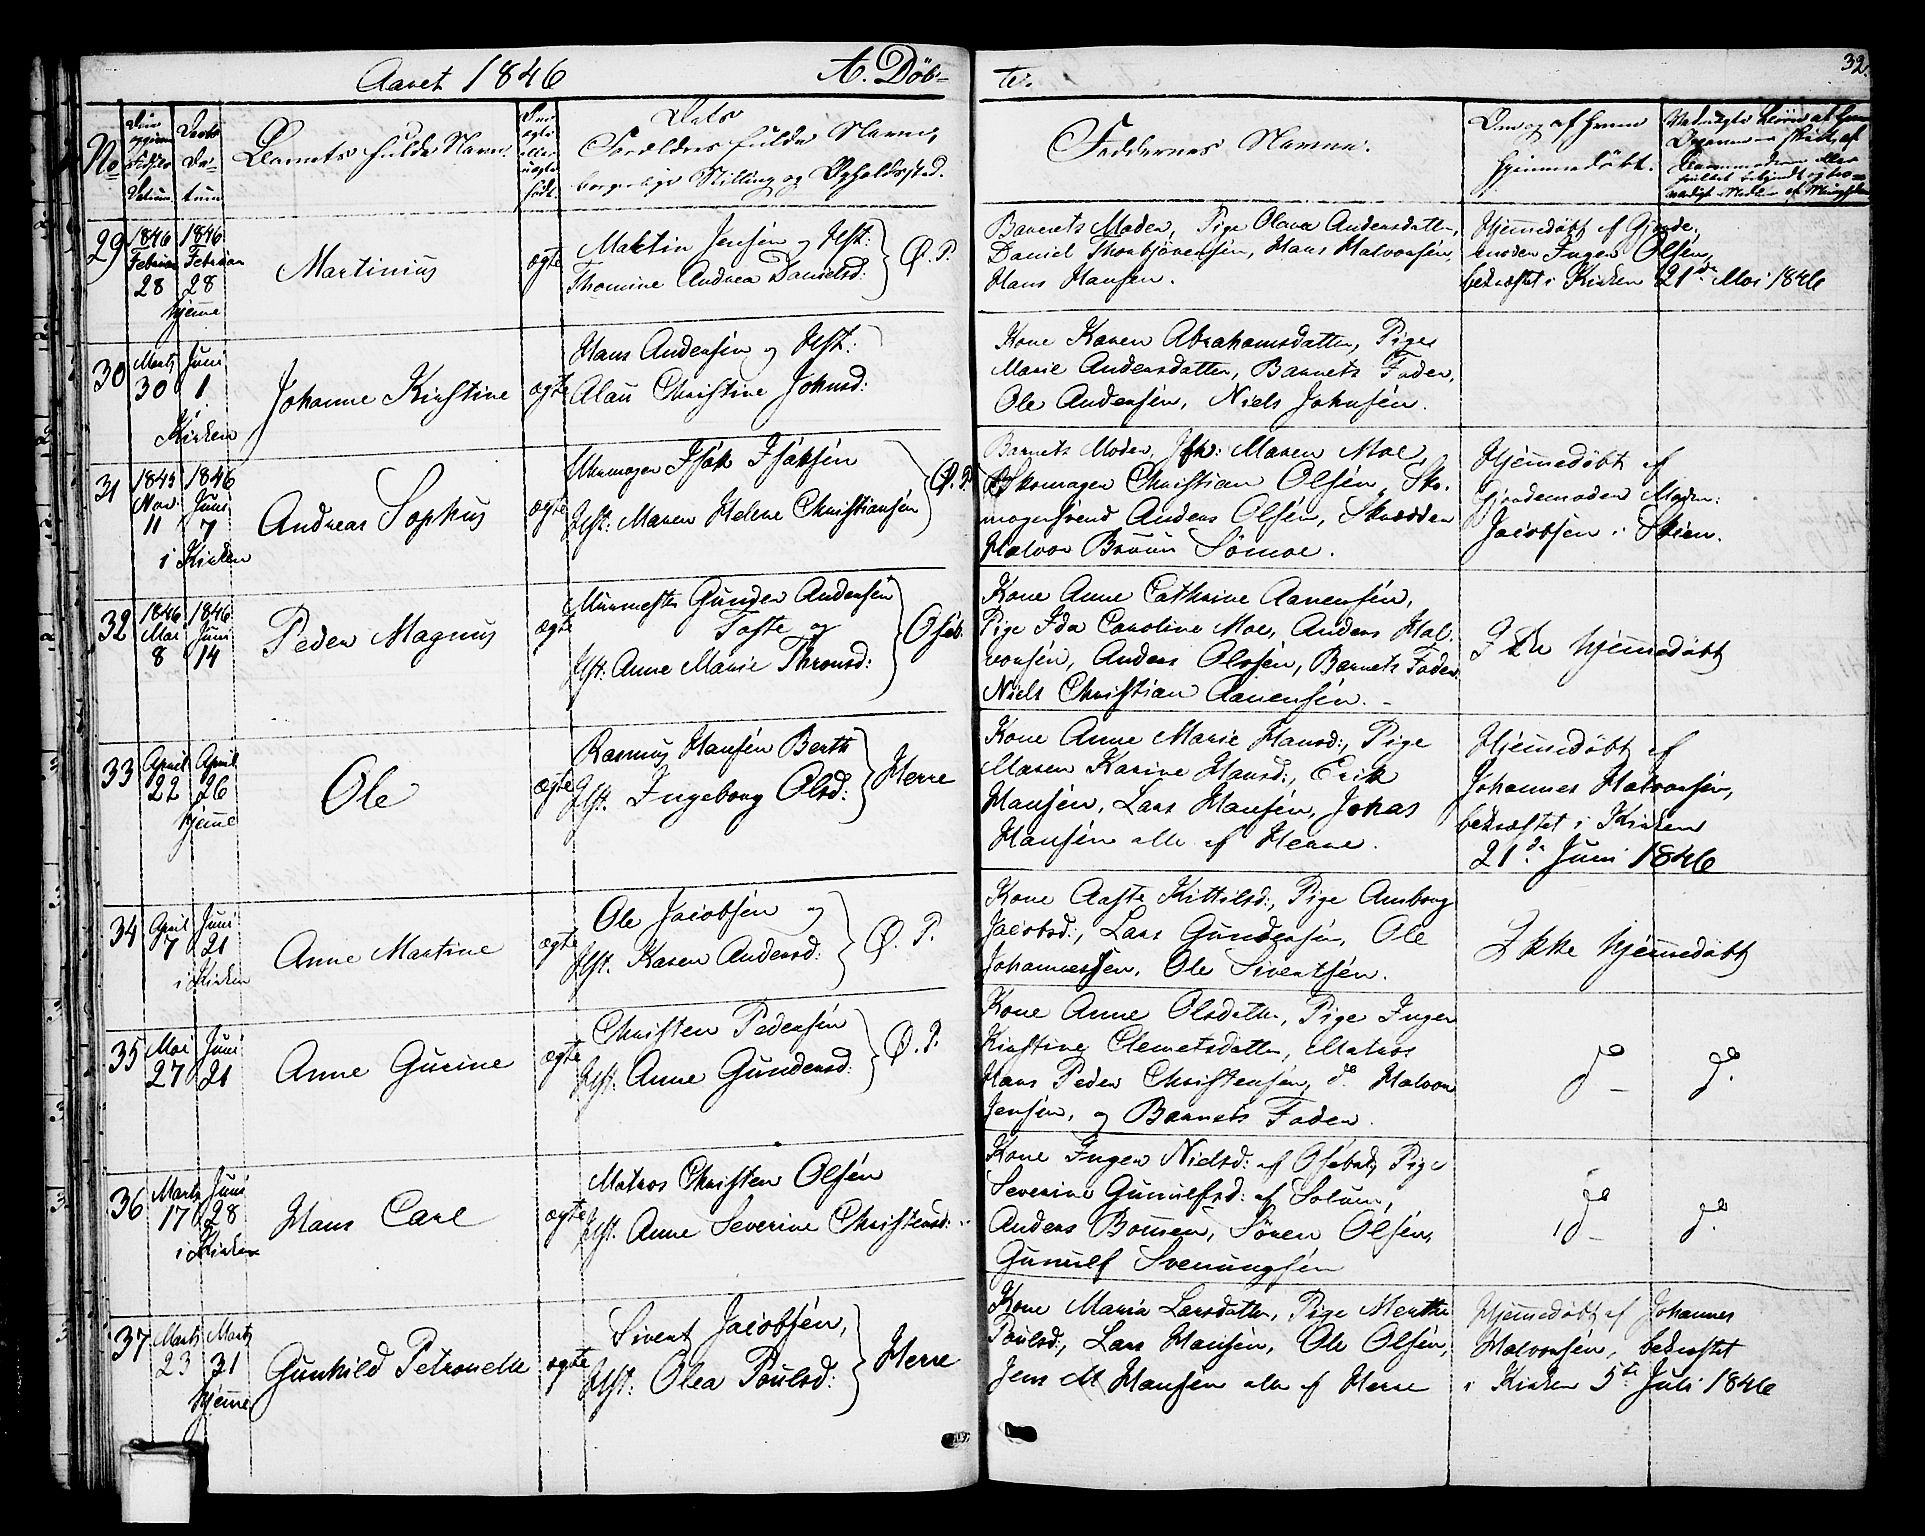 Aaret 1846
A. Döb-
te.
32.
No
Daabs
Da-
tum
Barnets fulde Navn.
ægte
eller
uægte
født
Dets
Forældres fulde Navne,
borgerlige Stilling og Opholdssted.
Faddernes Navne.
Om og af hvem
hjemmedöbt.
29
1846
Februar
28
1846
Februar
28
hjemme
Martinius
ægte
Martin Jensen og Hst:
Thomine Andrea Danielsd:
Ø. P.
Barnets Moder, Pige Olava Andersdatter,
Daniel Thorbjörnsen, Hans Halvorsen,
Hans Hansen.
Hjemedöbt af Gjorde-
moder Inger Olsen,
bekræftet i Kirken 21de Mai 1846
30
Marts
30
Juni
1
i Kirken
Johanne Kirstine
ægte
Hans Andersen og Hst:
Christine Johnsd:
Kone Karen Abrahamsdatter, Pige
Marie Andersdatter, Barnets Fader,
Ole Andersen, Niels Johnsen.
31
1845
Nov
11
1846
Juni
7
i Kirken
Andreas Sophus
ægte
Uhrmager Isak Isaksen
Hst: Maren Helene Christiansen
Ø. P.
Barnets Moder, Jfr: Maren Moe,
Skomager Christian Olsen, Sko-
magersvend Anders Olsen, Skrædder
Halvor Bruun Somoe.
Hjemmedöbt af
Gjordemoder Madm:
Jacobsen i Skien.
32
1846
Mai
8
1846
Juni
14
Peder Magnus
ægte
Muurmester Gunder Andersen
Tofte og
Hst: Anne Marie Thronsd:
Oseb.
Kone Anne Cathrine Aanensen,
Pige Ida Caroline Moe, Anders Hal-
vorsen, Anders Olsen, Barnets Fader
Niels Christian Aanensen. -
Ikke hjemmedöbt
33
April
22
April
26
hjemme
Ole
ægte
Rasmus Hansen Berth
Hst: Ingeborg Olsd:
Herre
Kone Anne Marie Hansd:, Pige
Maren Karine Hansd:, Erik
Hansen, Lars Hansen, Johas
Hansen alle af Herre.
Hjemmedöbt af
Johannes Halvorsen,
bekræftet i Kirken
21de Juni 1846
34
April
7
Juni
21
i Kirken
Anne Martine
ægte
Ole Jacobsen og
Hst. Karen Andersd:
Ø. P.
Kone Aaste Kittilsd:, Pige Amborg
Jacobsd:, Lars Gundersen, Ole
Johannessen, Ole Sivertsen.
Ikke hjemmedöbt
35
Mai
27
Juni
21
Anne Gurine
ægte
Christen Pedersen
Hst: Anne Gundersd:
Ø. P.
Kone Anne Olsdatter, Pige Inger
Kirstine Clemetsdatter, Matros
Hans Peder Christensen, do Halvor
Jensen, og Barnets Fader.
do - do.
36
Marts
17
Juni
28
i Kirken
Hans Carl
ægte
Matros Christen Olsen
Hst: Anne Severine Christensd:
Kone Inger Nielsd: af Osebak, Pige
Severine Gunulfsd: af Solum,
Anders Boesen, Sören Olsen,
Gunulf Svenungsen
do - do.
37
Marts
23
Marts
31
hjemme
Gunhild Petronelle
ægte
Sivert Jacobsen,
Hst: Olea Poulsd:
Herre
Kone Maria Larsdatter, Pige Merthe
Poulsd:, Lars Hansen, Ole Olsen,
Jens M Hansen alle af Herre
Hjemmedöbt af Johannes
Halvorsen, bekræftet
i Kirken 5te Juli 1846